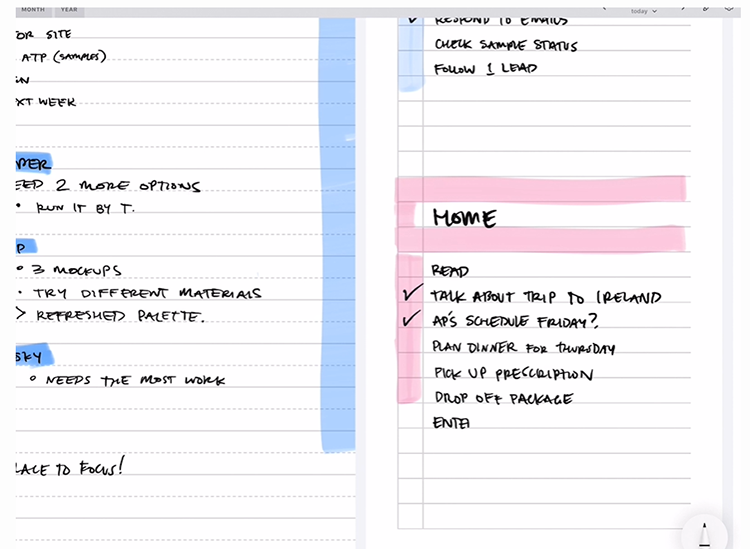 MONTH YEAR
today
OR SITE
ATP (SAMPLES)
XT WEEK
EED 2 MORE OPTIONS
• RUN IT BY T.
P
• 3 MOCKUPS
• TRY DIFFERENT MATERIALS
> REFRESHED PALETTE.
SKY
○ NEEDS THE MOST WORK
LACE TO FOCUS!
✓ RESPOND TO EMAILS
CHECK SAMPLE STATUS
FOLLOW 1 LEAD
HOME
READ
✓ TALK ABOUT TRIP TO IRELAND
✓ AP'S SCHEDULE FRIDAY?
PLAN DINNER FOR THURSDAY
PICK UP PRESCRIPTION
DROP OFF PACKAGE
ENTE